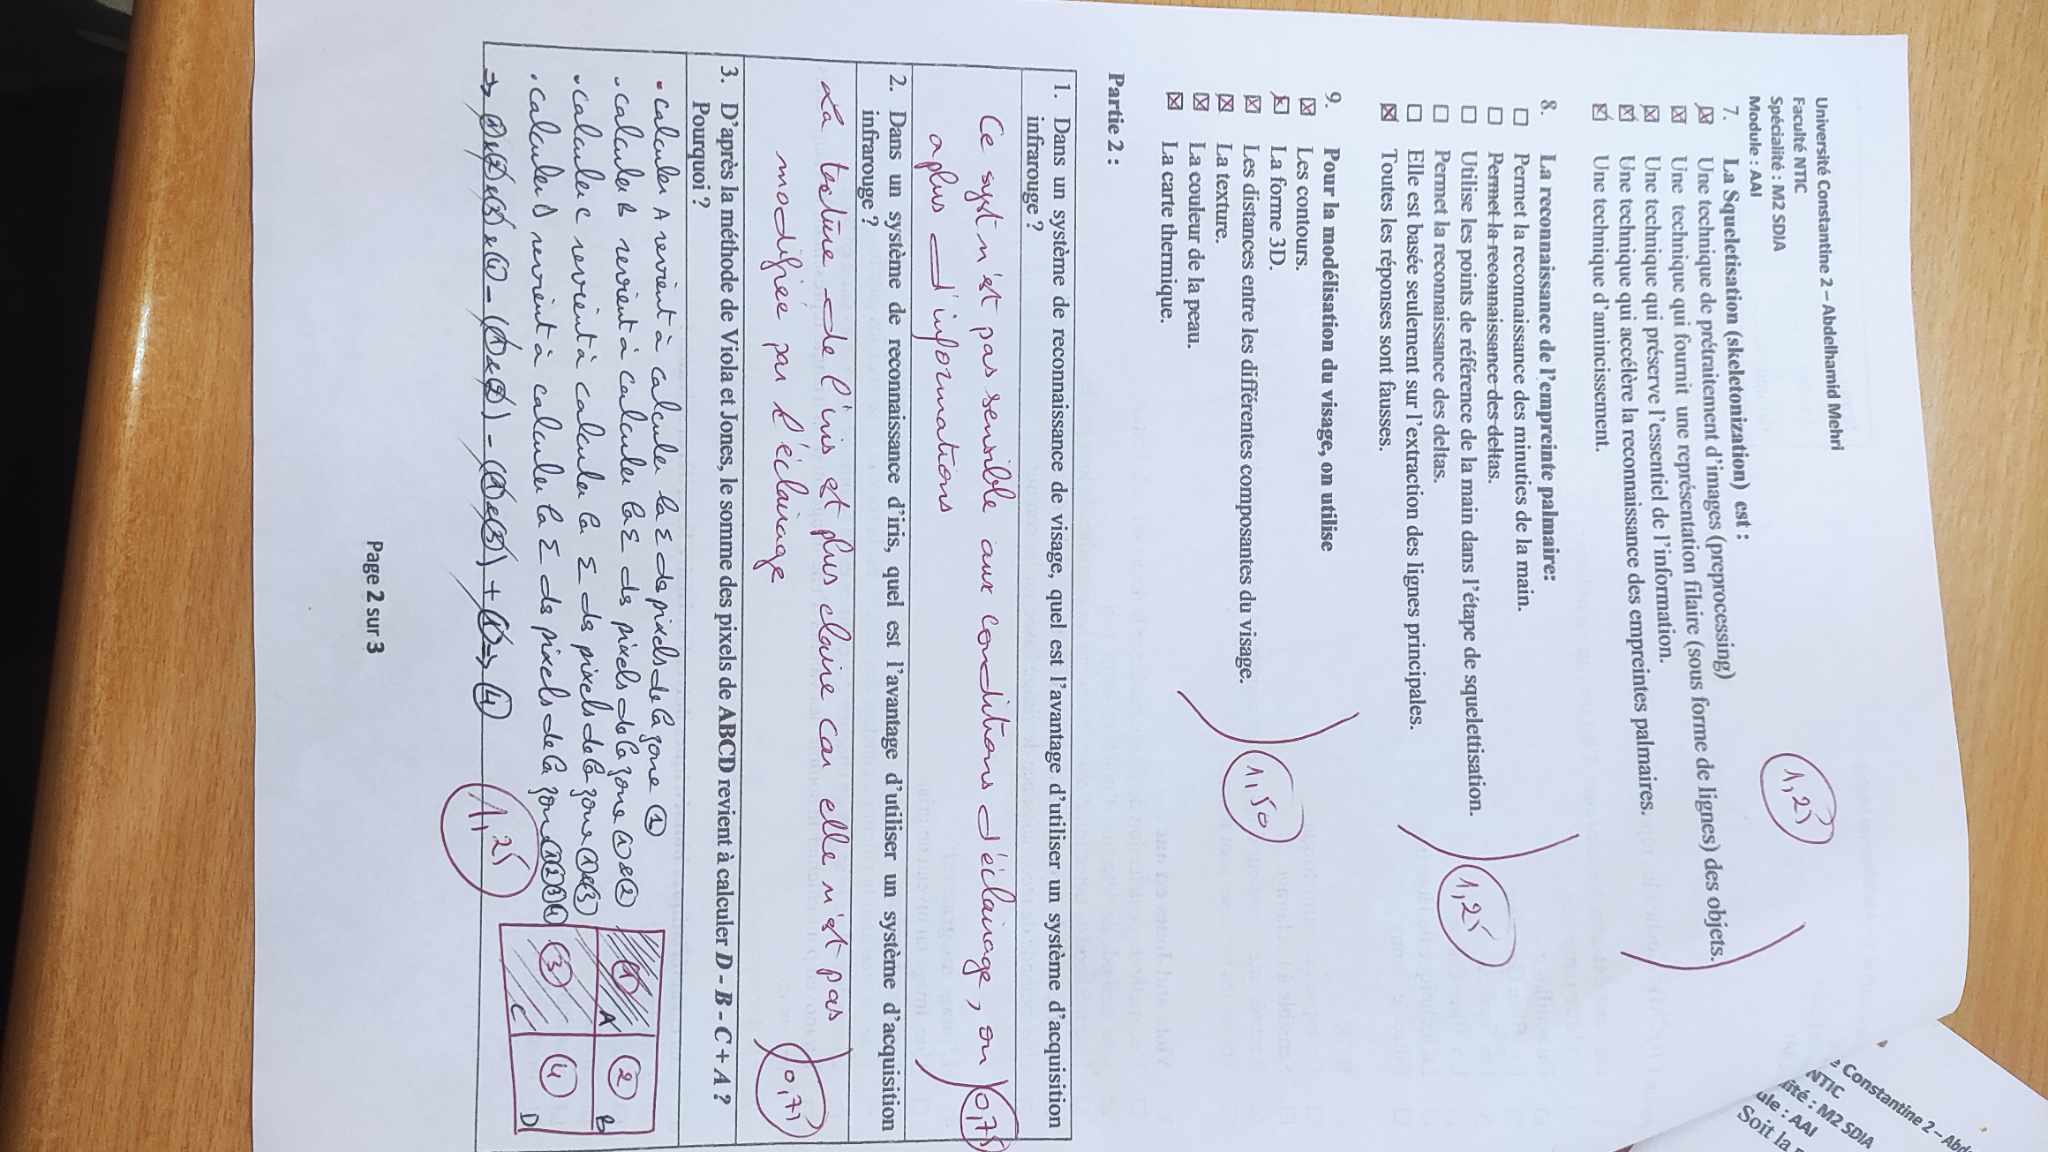 Université Constantine 2 – Abdelhamid Mehri
Faculté NTIC
Spécialité : M2 SDIA
Module : AAI
1,25
7. La Squeletisation (skeletonization) est :
Une technique de prétraitement d'images (preprocessing)
Une technique qui fournit une représentation filaire (sous forme de lignes) des objets.
Une technique qui préserve l'essentiel de l'information.
Une technique qui accélère la reconnaissance des empreintes palmaires.
Une technique d'amincissement.
8. La reconnaissance de l'empreinte palmaire:
Permet la reconnaissance des minuties de la main.
Permet la reconnaissance des deltas.
Utilise les points de référence de la main dans l'étape de squelettisation.
1,25
Permet la reconnaissance des deltas.
Elle est basée seulement sur l'extraction des lignes principales.
Toutes les réponses sont fausses.
9. Pour la modélisation du visage, on utilise
Les contours.
La forme 3D.
Les distances entre les différentes composantes du visage.
1,50
La texture.
La couleur de la peau.
La carte thermique.
Partie 2 :
1. Dans un système de reconnaissance de visage, quel est l'avantage d'utiliser un système d'acquisition
infrarouge ?
Ce syst n'est pas sensible aux conditions d'éclairage, on
0,75
a plus d'informations
2. Dans un système de reconnaissance d'iris, quel est l'avantage d'utiliser un système d'acquisition
infrarouge ?
La texture de l'iris est plus claire car elle n'est pas
modifiée par l'éclairage
0,75
3. D'après la méthode de Viola et Jones, le somme des pixels de ABCD revient à calculer D - B - C + A ?
Pourquoi ?
• calculer A revient à calculer la Σ ds pixels de la zone ①
• calculer B revient à calculer la Σ ds pixels de la zone ① & ②
• calculer C revient à calculer la Σ ds pixels de la zone ① & ③
• calculer D revient à calculer la Σ ds pixels de la zone ① ② ③ ④
⇒ ① & ② & ③ & ④ – (① & ②) – (① & ③) + ① ⇒ ④
1,25
① A ② B
③ C ④ D
Page 2 sur 3
Constantine 2 – Abd
NTIC
ité : M2 SDIA
ule : AAI
Soit la